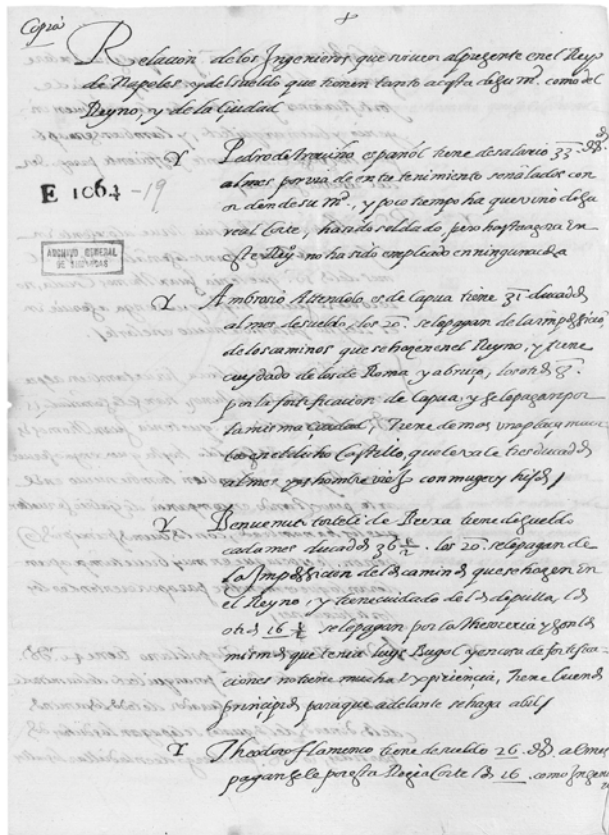 Copia
Relacion delos Ingenieros que siruen alpresente enel Reyº
de Napoles, y delsueldo que tienen tanto acosta desu mᵈ. como del
Reyno, y dela Ciudad
Pedro de Treuiño español tiene desalario 33 dºˢ.
almes por via de entretenimiento señalados con
orden desu mᵈ., y poco tiempo ha que vino desu
real Corte, ha sido soldado, pero hasta agora en
este Reyº no ha sido empleado en ninguna cosa
E 1064-19
ARCHIVO GENERAL
DE SIMANCAS
Ambrosio Attendolo es de Capua tiene 31 ducados
almes desueldo, los 20. selopagan dela imposicion
delos caminos que sehazen enel Reyno, y tiene
cuydado delos de Roma y abruço, los otros
por la fortificacion de Capua, y selo pagan por
la misma ciudad, tiene demas una plaça muerta
enel dicho Castillo, que le vale tres ducados
almes y es hombre viejo con muger y hijos /
Benuenuto torteli de Brexa tiene desueldo
cada mes ducados 36 ½. los 20. selopagan de
la Imposicion delos caminos que se hazen en
el Reyno, y tiene cuidado delos depulla, los
otros 16 ½ selopagan por la thesoreria y son los
mismos que tenia Bugol y en cosa de fortifica-
ciones no tiene mucha expiriencia, tiene buenos
principios para que adelante sehaga abil /
Theodoro flamenco tiene desueldo 26. dºˢ. almes
pagansele por esta Regia Corte los 16. como Ingeniº